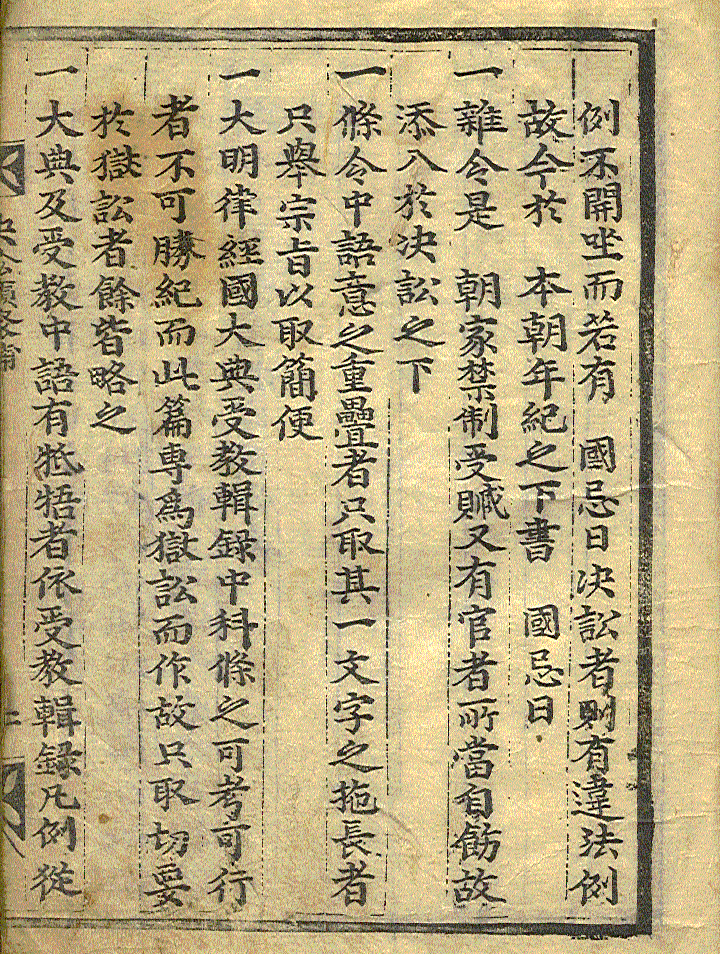 例不開坐而若有　國忌日决訟者則有違法例
故今於　本朝年紀之下書　國忌日
一雜令是　朝家禁制受贓又有官者所當自飭故
添入於决訟之下
一條令中語意之重疊者只取其一文字之拖長者
只舉宗旨以取簡便
一大明律經國大典受教輯錄中科條之可考可行
者不可勝紀而此篇專爲獄訟而作故只取切要
於獄訟者餘皆略之
一大典及受教中語有牴牾者依受教輯錄凡例從